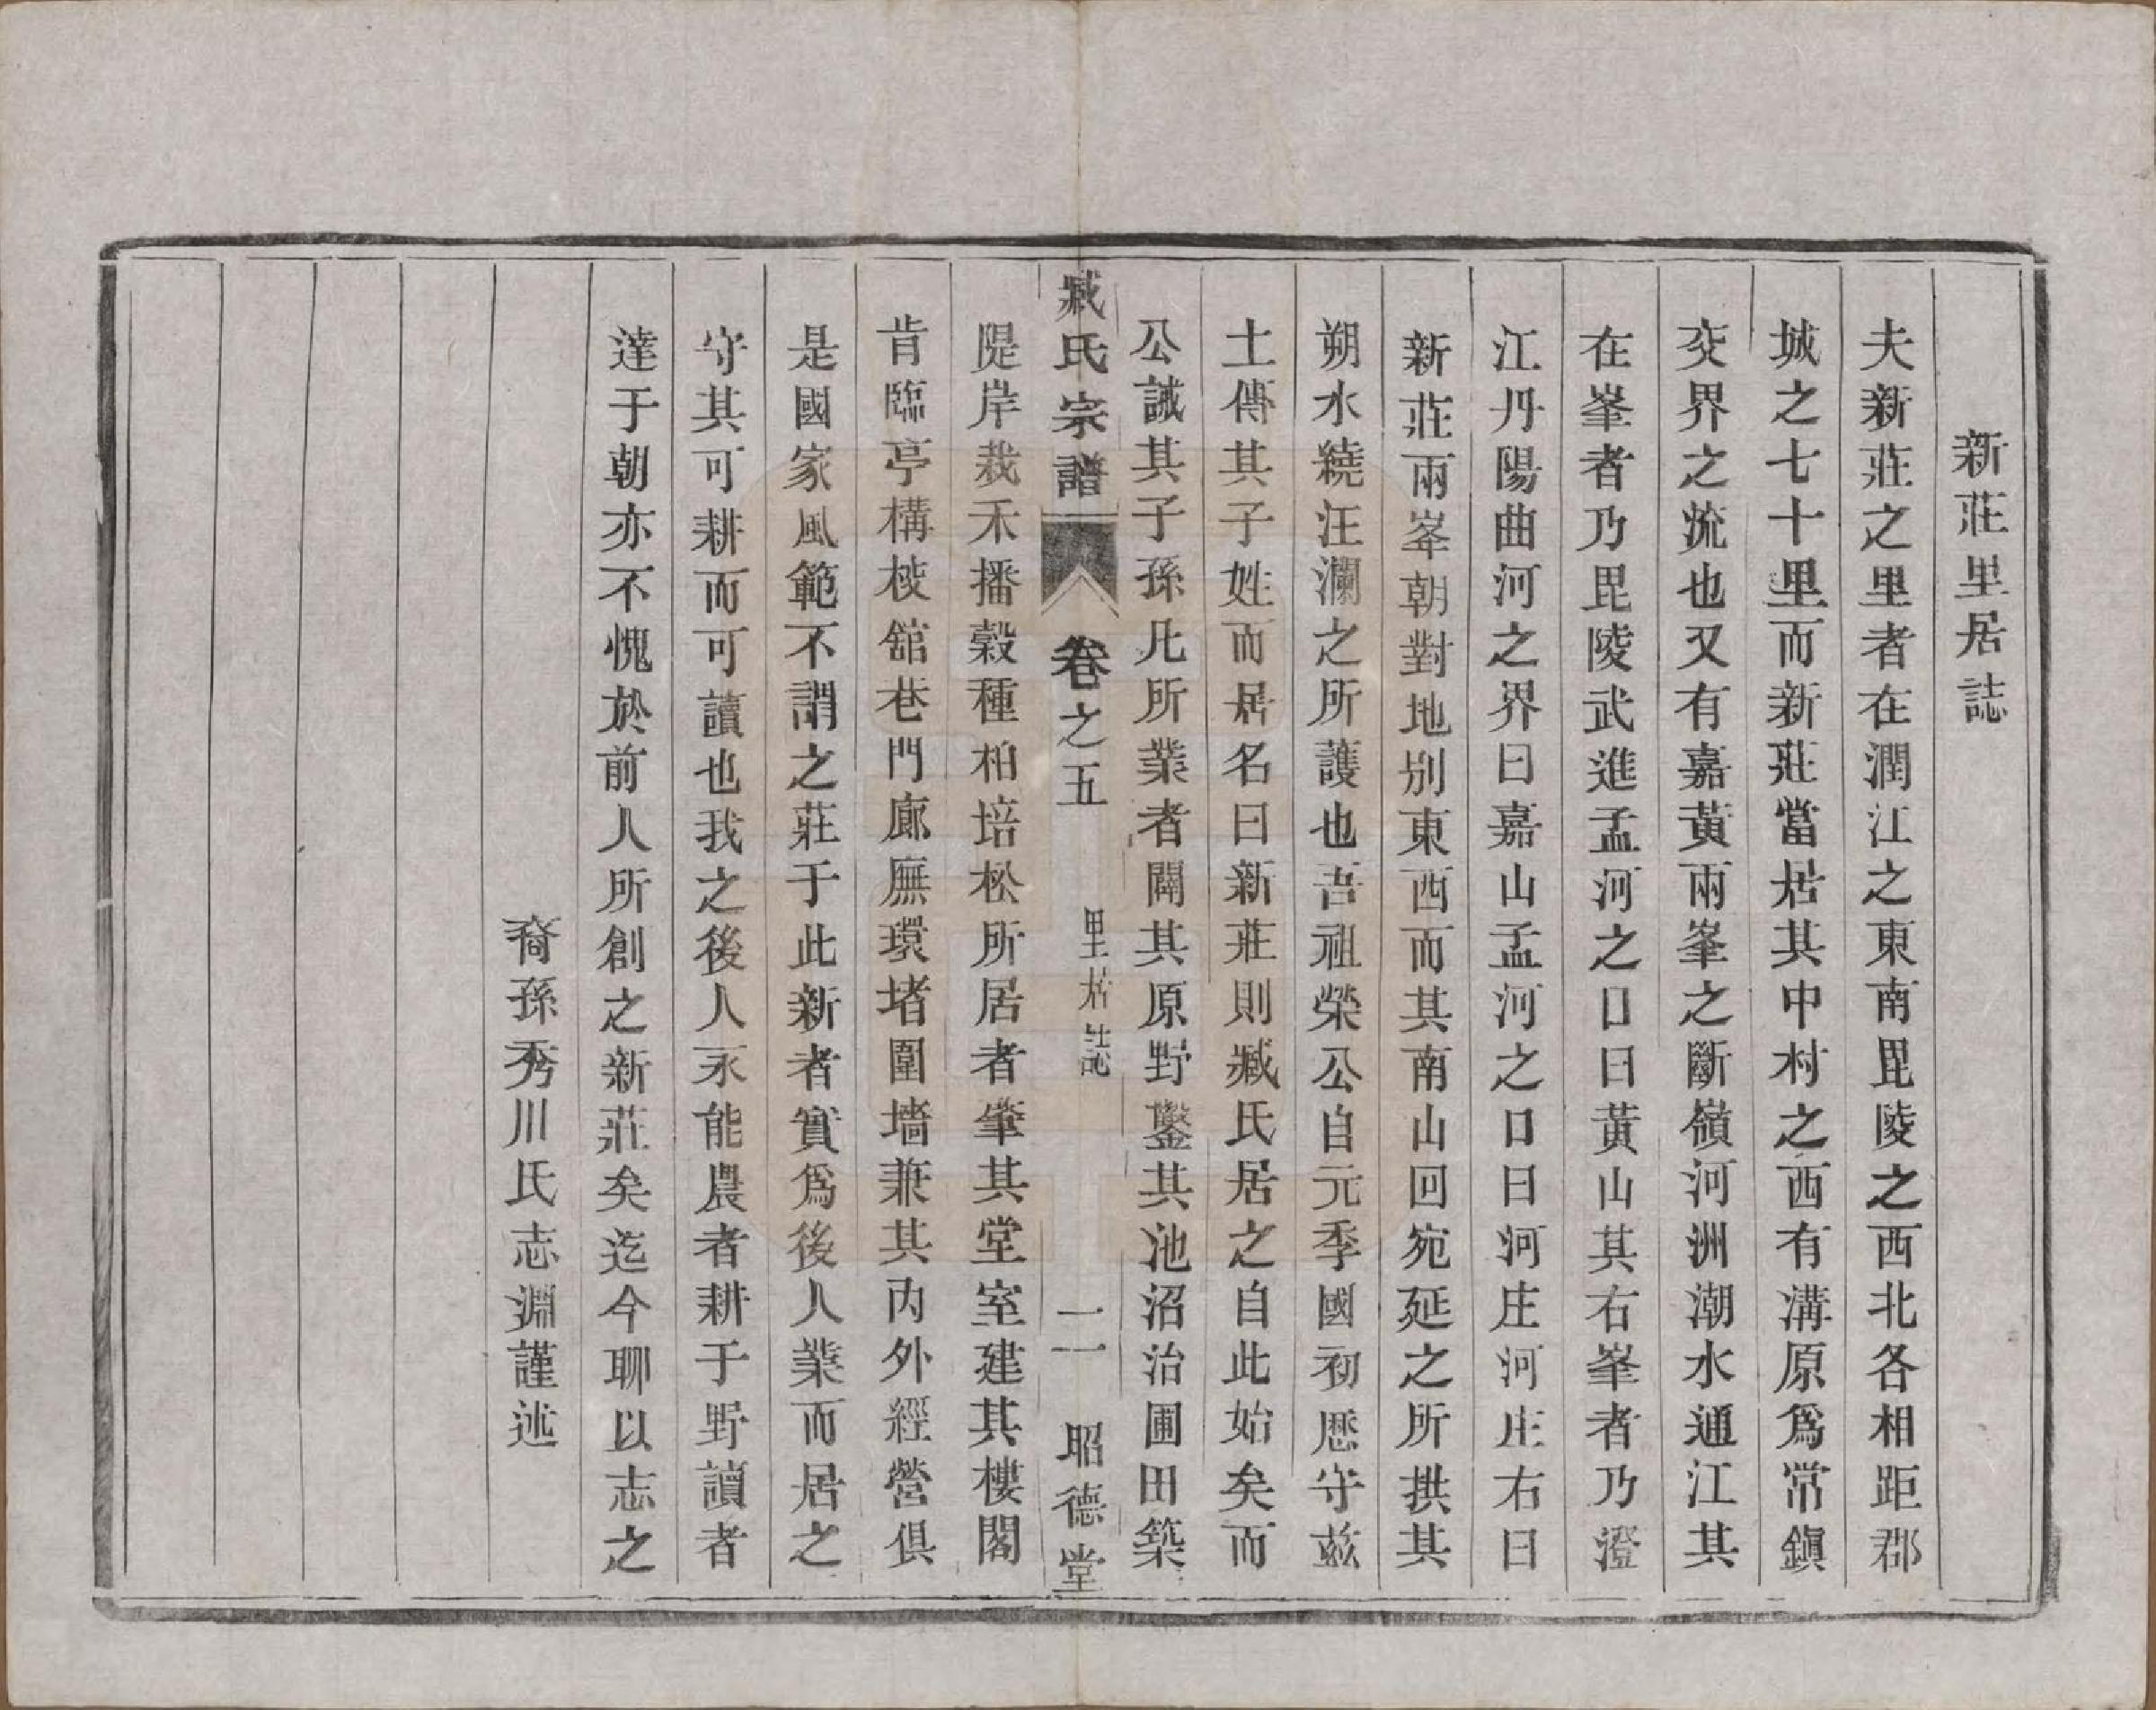 新莊里居誌
夫新莊之里者在潤江之東南毘陵之西北各相距郡
城之七十里而新莊當居其中村之西有溝原爲常鎭
交界之流也又有嘉黃兩峯之斷嶺河洲潮水通江其
在峯者乃毘陵武進孟河之口曰黃山其右峯者乃澄
江丹陽曲河之界曰嘉山孟河之口曰河庄河庄右曰
新莊兩峯朝對地别東西而其南山回宛延之所拱其
朔水繞汪瀾之所護也吾祖榮公自元季國初歷守兹
土傳其子姓而居名曰新莊則臧氏居之自此始矣而
公誡其子孫凡所業者闢其原野鑿其池沼治圃田築
臧氏宗譜 卷之五 里居誌 二 昭德堂
隄岸栽禾播穀種柏培松所居者肇其堂室建其樓閣
肯臨亭構棱舘巷門廊廡環堵圍墻兼其內外經營俱
是國家風範不謂之莊于此新者實爲後人業而居之
守其可耕而可讀也我之後人永能農者耕于野讀者
達于朝亦不愧於前人所創之新莊矣迄今聊以志之
裔孫秀川氏志淵謹述